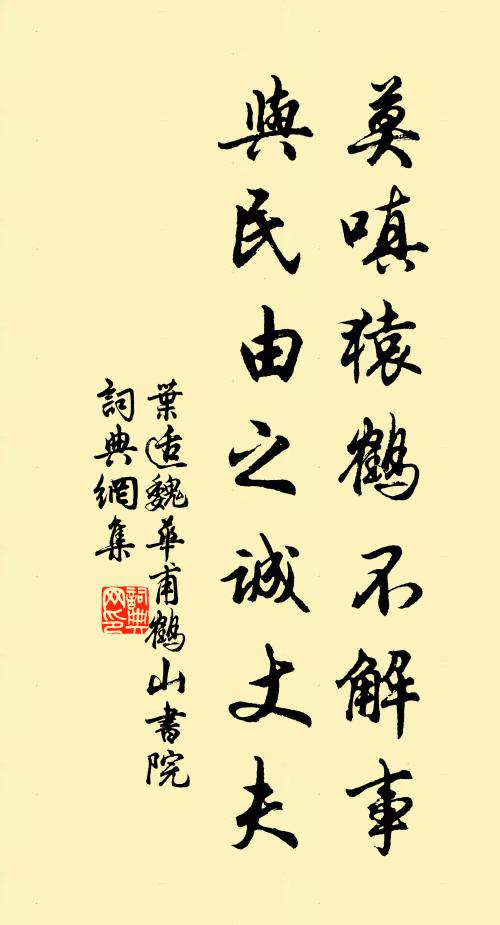 莫嗔猿鶴不解事
與民由之誠丈夫
葉适魏華甫鶴山書院
詞典網集
詞典网印